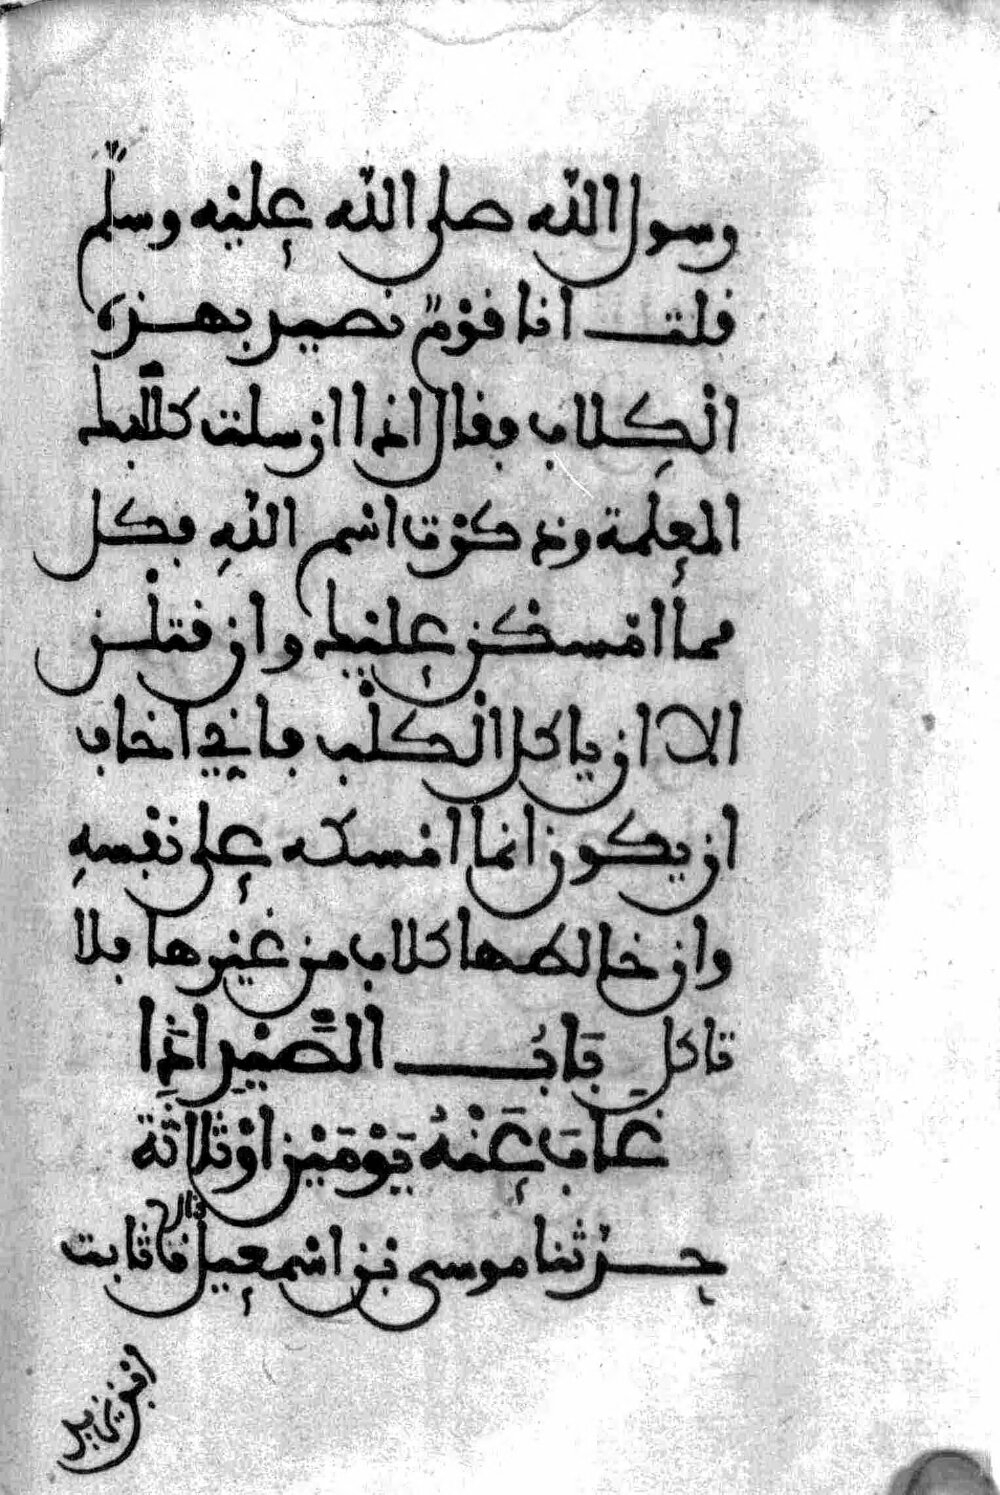 رسول الله صلى الله عليه وسلم
قلت انا قوم نصيد بهذه
الكلاب فقال اذا ارسلت كلابك
المعلمة وذكرت اسم الله فكل
مما امسكن عليك وان قتلن
الا ان ياكل الكلب فاني اخاف
ان يكون انما امسكه على نفسه
وان خالطها كلاب من غيرها فلا
تاكل باب الصيد اذا
غاب عنه يومين او ثلاثة
حدثنا موسى بن اسمعيل قال نا ثابت
ابن يزيد